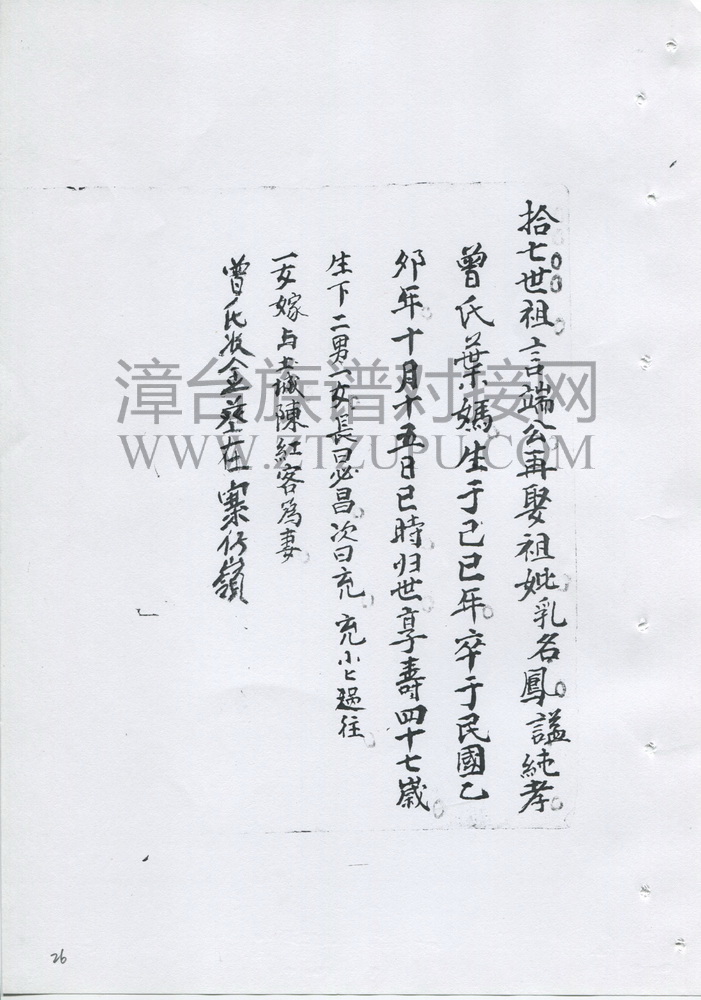 拾七世祖言端公再娶祖妣乳名鳳謚純孝
曾氏葉媽生于己巳年卒于民國乙
夘年十月十五日巳時归世享壽四十七歲
生下二男一女長曰必昌次曰充充小亡過往
一女嫁与土城陳紅客為妻
曾氏收金葬在寨仔嶺
漳台族谱对接网
WWW.ZTZUPU.COM
26